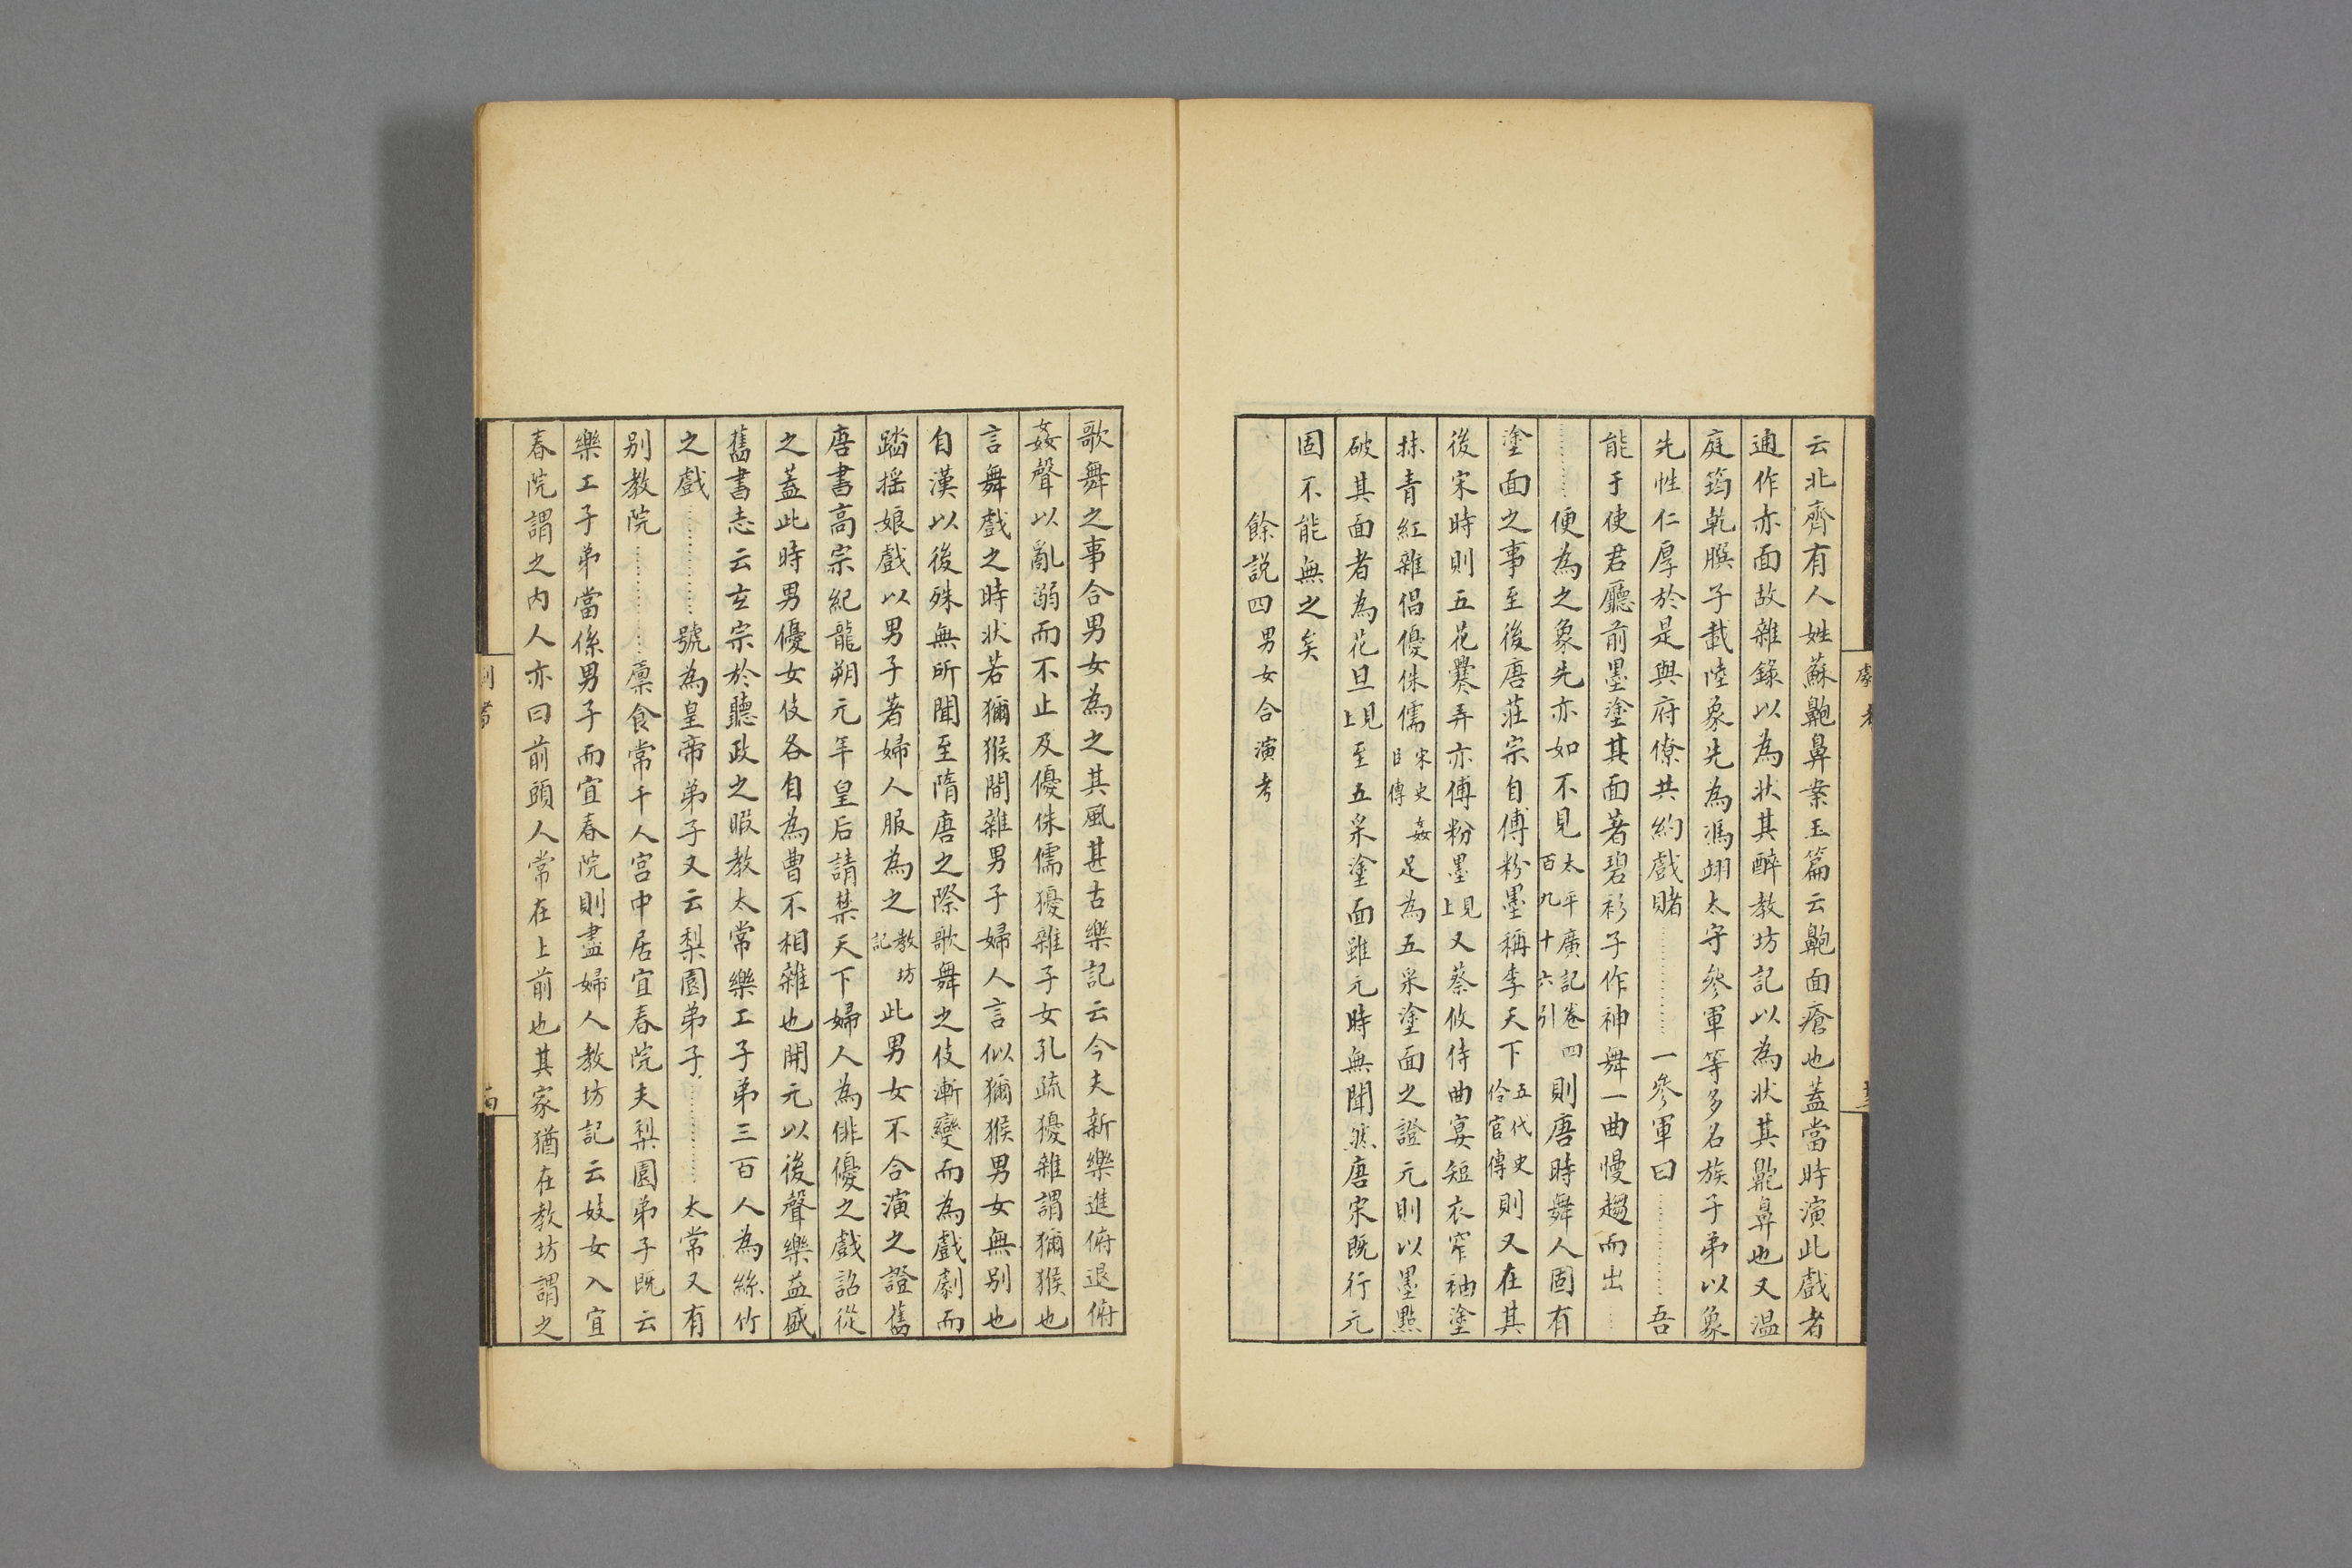 云北齊有人姓蘇䶌鼻案玉篇云䶌面瘡也蓋當時演此戲者
通作亦面故雜錄以為狀其醉教坊記以為狀其䶌鼻也又温
庭筠乾𦠆子載陸象先為馮翊太守參軍等多名族子弟以象
先性仁厚於是與府僚共約戲賭…………一參軍曰…………吾
能于使君廳前墨塗其面著碧衫子作神舞一曲慢趨而出……
……便為之象先亦如不見太平廣記卷四百九十六引則唐時舞人固有
塗面之事至後唐莊宗自傅粉墨稱李天下五代史伶官傳則又在其
後宋時則五花爨弄亦傅粉墨見上又蔡攸侍曲宴短衣窄袖塗
抹青紅雜倡優侏儒宋史姦臣傳足為五采塗面之證元則以墨點
破其面者為花旦見上至五采塗面雖元時無聞然唐宋既行元
固不能無之矣
餘説四男女合演考
歌舞之事合男女為之其風甚古樂記云今夫新樂進俯退俯
姦聲以亂溺而不止及優侏儒獶雜子女孔疏獶雜謂獼猴也
言舞戲之時狀若獼猴間雜男子婦人言似獼猴男女無别也
自漢以後殊無所聞至隋唐之際歌舞之伎漸變而為戲劇而
踏摇娘戲以男子著婦人服為之教坊記此男女不合演之證舊
唐書高宗紀龍朔元年皇后請禁天下婦人為俳優之戲詔從
之蓋此時男優女伎各自為曹不相雜也開元以後聲樂益盛
舊書志云玄宗於聽政之暇教太常樂工子弟三百人為絲竹
之戲…………號為皇帝弟子又云梨園弟子…………太常又有
别教院…………廩食常千人宫中居宜春院夫梨園弟子既云
樂工子弟當係男子而宜春院則盡婦人教坊記云妓女入宜
春院謂之内人亦曰前頭人常在上前也其家猶在教坊謂之